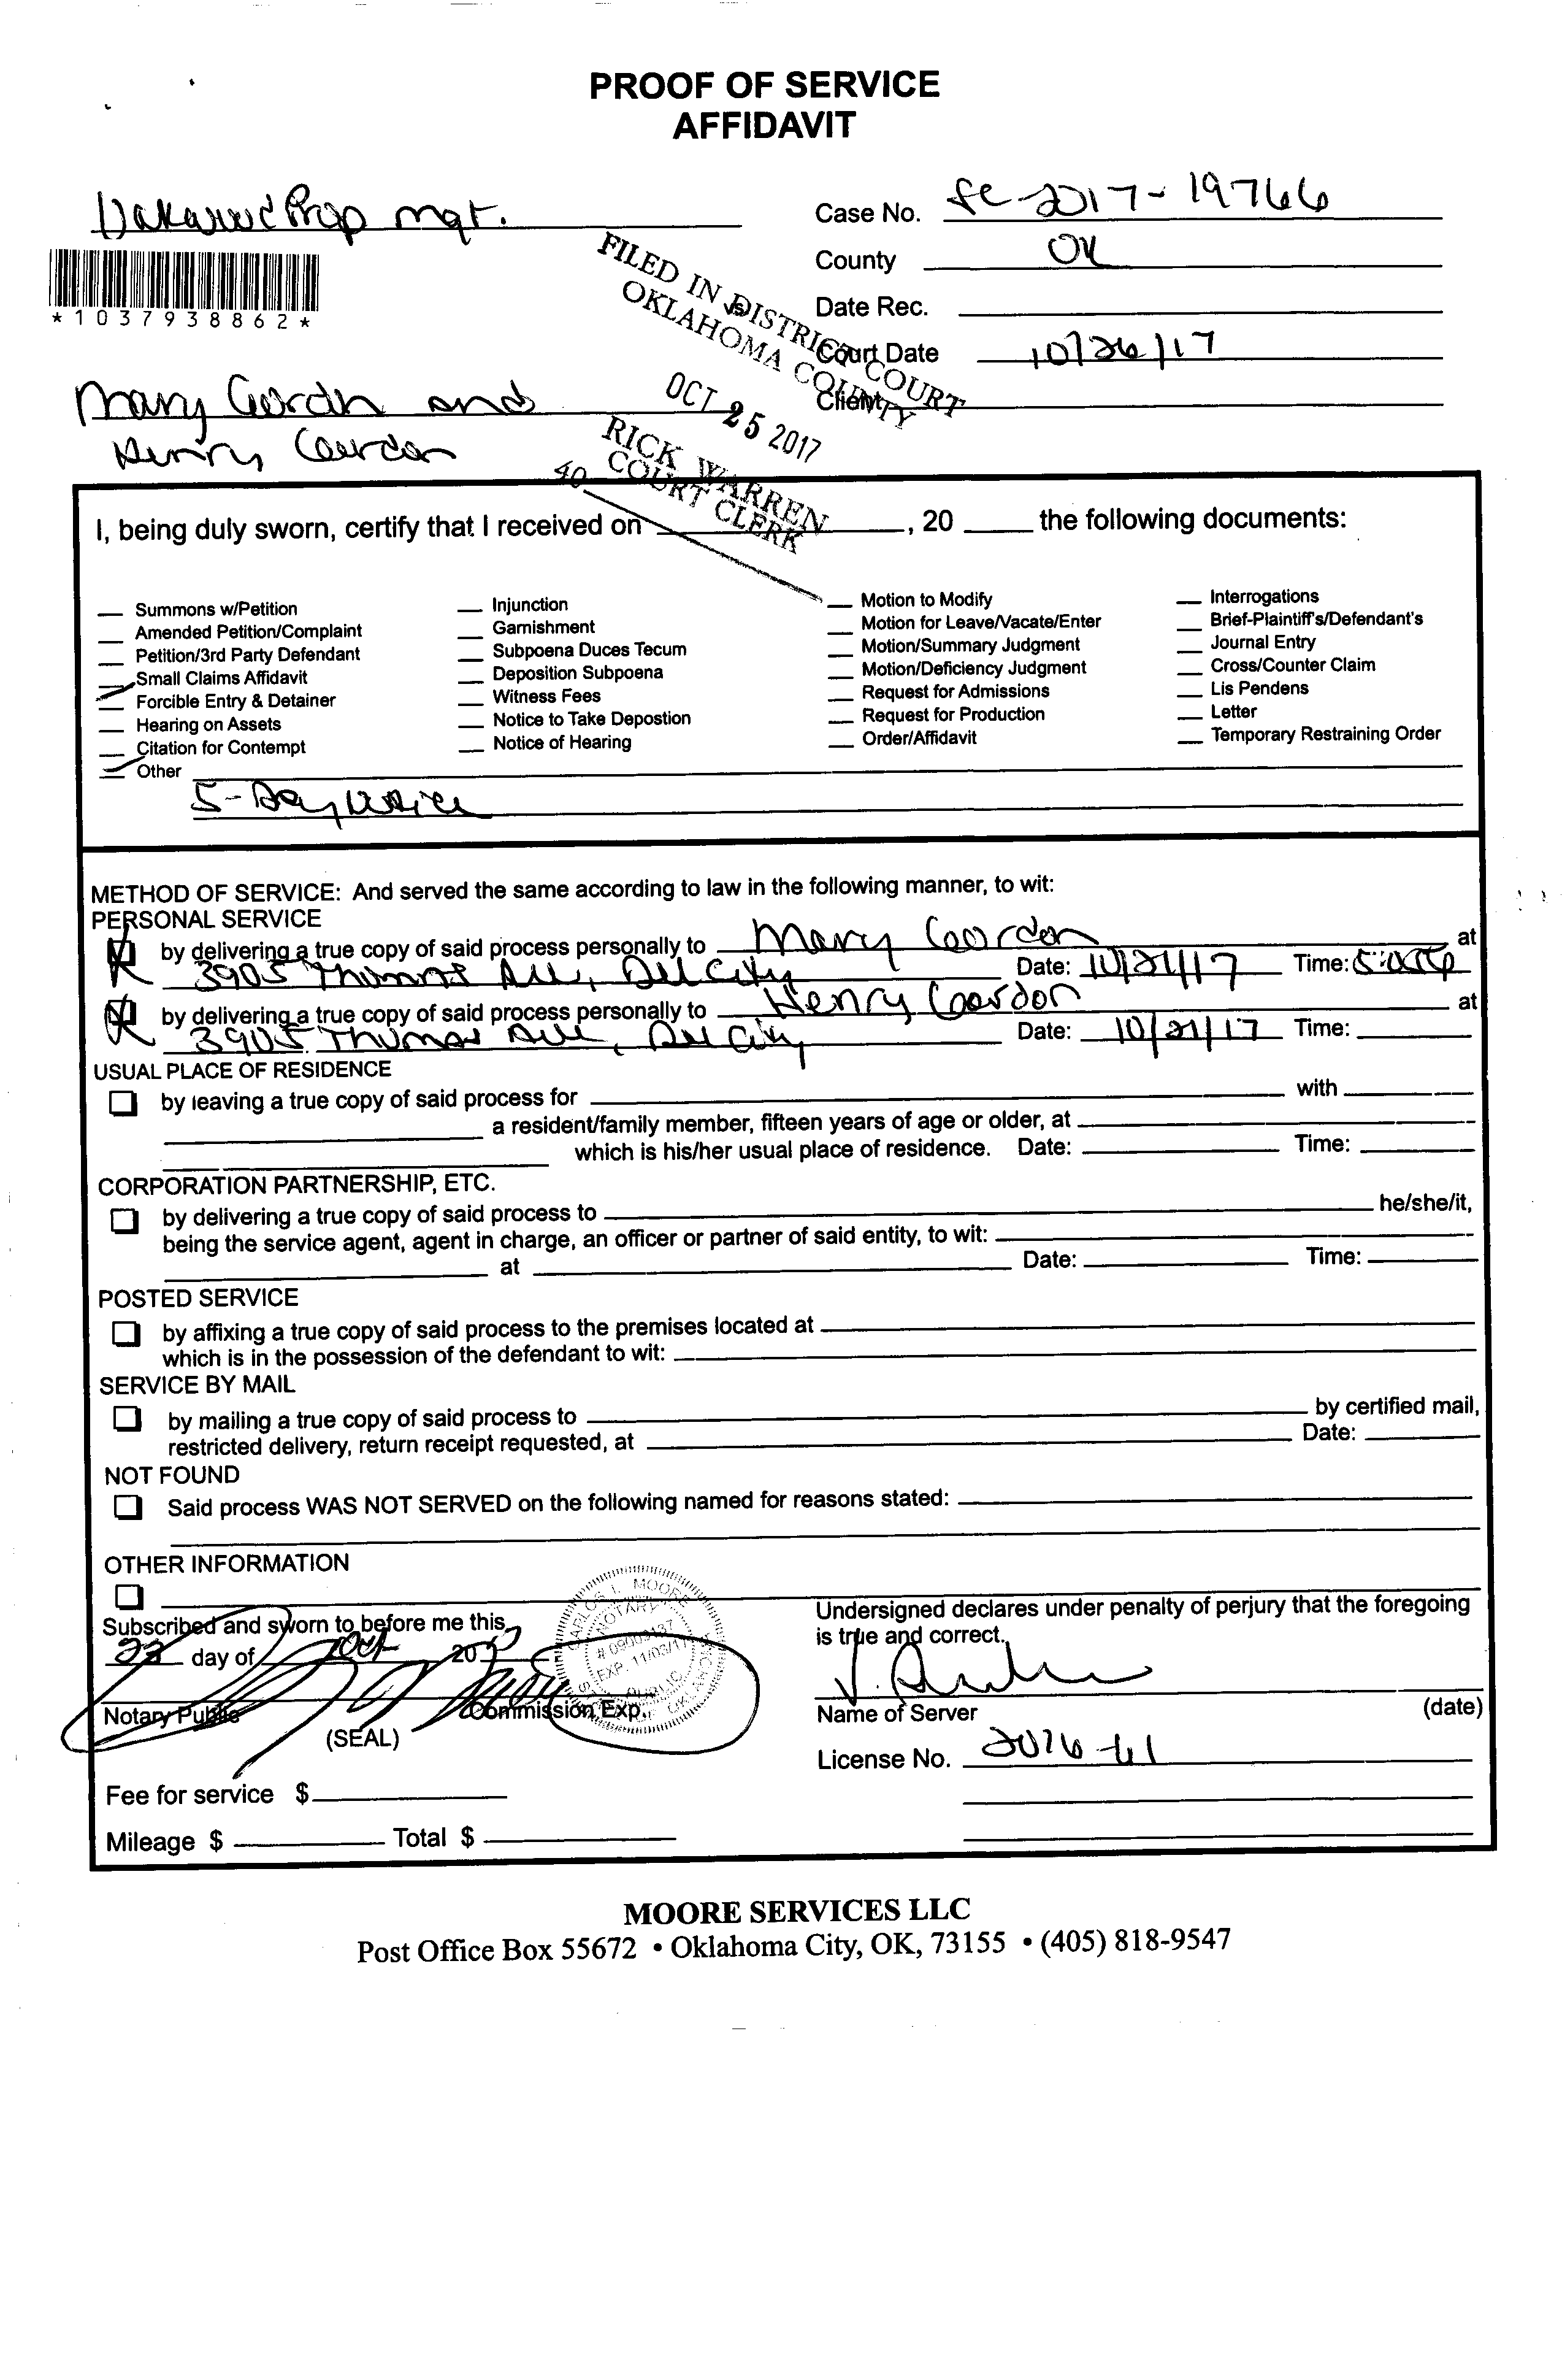 PROOF OF SERVICE
AFFIDAVIT
Prop mgt.
Case No. SC-2017-19766
*1037938862*
County OK
vs
Date Rec.
Court Date 10/26/17
Client
Mary Gordon and
Henry Gordon
FILED IN DISTRICT COURT
OKLAHOMA COUNTY
OCT 25 2017
RICK WARREN
COURT CLERK
40
I, being duly sworn, certify that I received on , 20 the following documents:
Summons w/Petition
Amended Petition/Complaint
Petition/3rd Party Defendant
Small Claims Affidavit
Forcible Entry & Detainer
Hearing on Assets
Citation for Contempt
Other
Injunction
Garnishment
Subpoena Duces Tecum
Deposition Subpoena
Witness Fees
Notice to Take Depostion
Notice of Hearing
Motion to Modify
Motion for Leave/Vacate/Enter
Motion/Summary Judgment
Motion/Deficiency Judgment
Request for Admissions
Request for Production
Order/Affidavit
Interrogations
Brief-Plaintiff's/Defendant's
Journal Entry
Cross/Counter Claim
Lis Pendens
Letter
Temporary Restraining Order
5-Day Notice
METHOD OF SERVICE: And served the same according to law in the following manner, to wit:
PERSONAL SERVICE
by delivering a true copy of said process personally to Mary Gordon at
3905 Thomas Ave, Del City Date: 10/21/17 Time:
by delivering a true copy of said process personally to Henry Gordon at
3905 Thomas Ave, Del City Date: 10/21/17 Time:
USUAL PLACE OF RESIDENCE
by leaving a true copy of said process for with
a resident/family member, fifteen years of age or older, at
which is his/her usual place of residence. Date: Time:
CORPORATION PARTNERSHIP, ETC.
by delivering a true copy of said process to he/she/it,
being the service agent, agent in charge, an officer or partner of said entity, to wit:
at Date: Time:
POSTED SERVICE
by affixing a true copy of said process to the premises located at
which is in the possession of the defendant to wit:
SERVICE BY MAIL
by mailing a true copy of said process to by certified mail,
restricted delivery, return receipt requested, at Date:
NOT FOUND
Said process WAS NOT SERVED on the following named for reasons stated:
OTHER INFORMATION
Subscribed and sworn to before me this
22 day of Oct 20
Notary Public
(SEAL)
Commission Exp.
CARLOS L. MOORE
NOTARY
# 09009137
EXP. 11/03/17
PUBLIC
Undersigned declares under penalty of perjury that the foregoing
is true and correct.
Name of Server (date)
License No. 2016-41
Fee for service $
Mileage $ Total $
MOORE SERVICES LLC
Post Office Box 55672 • Oklahoma City, OK, 73155 • (405) 818-9547